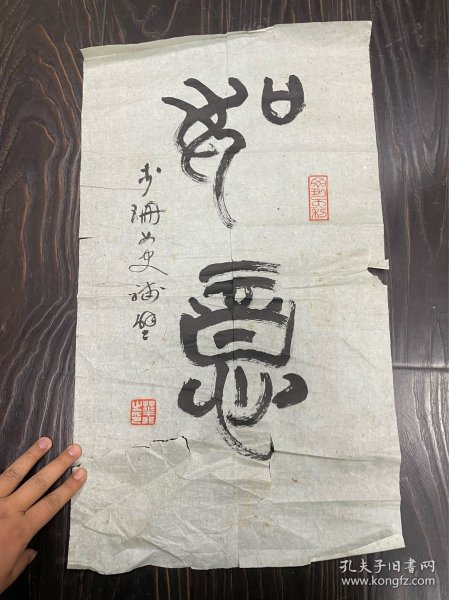 如意
步珊女史補壁
孔夫子旧书网
www.kongfz.com